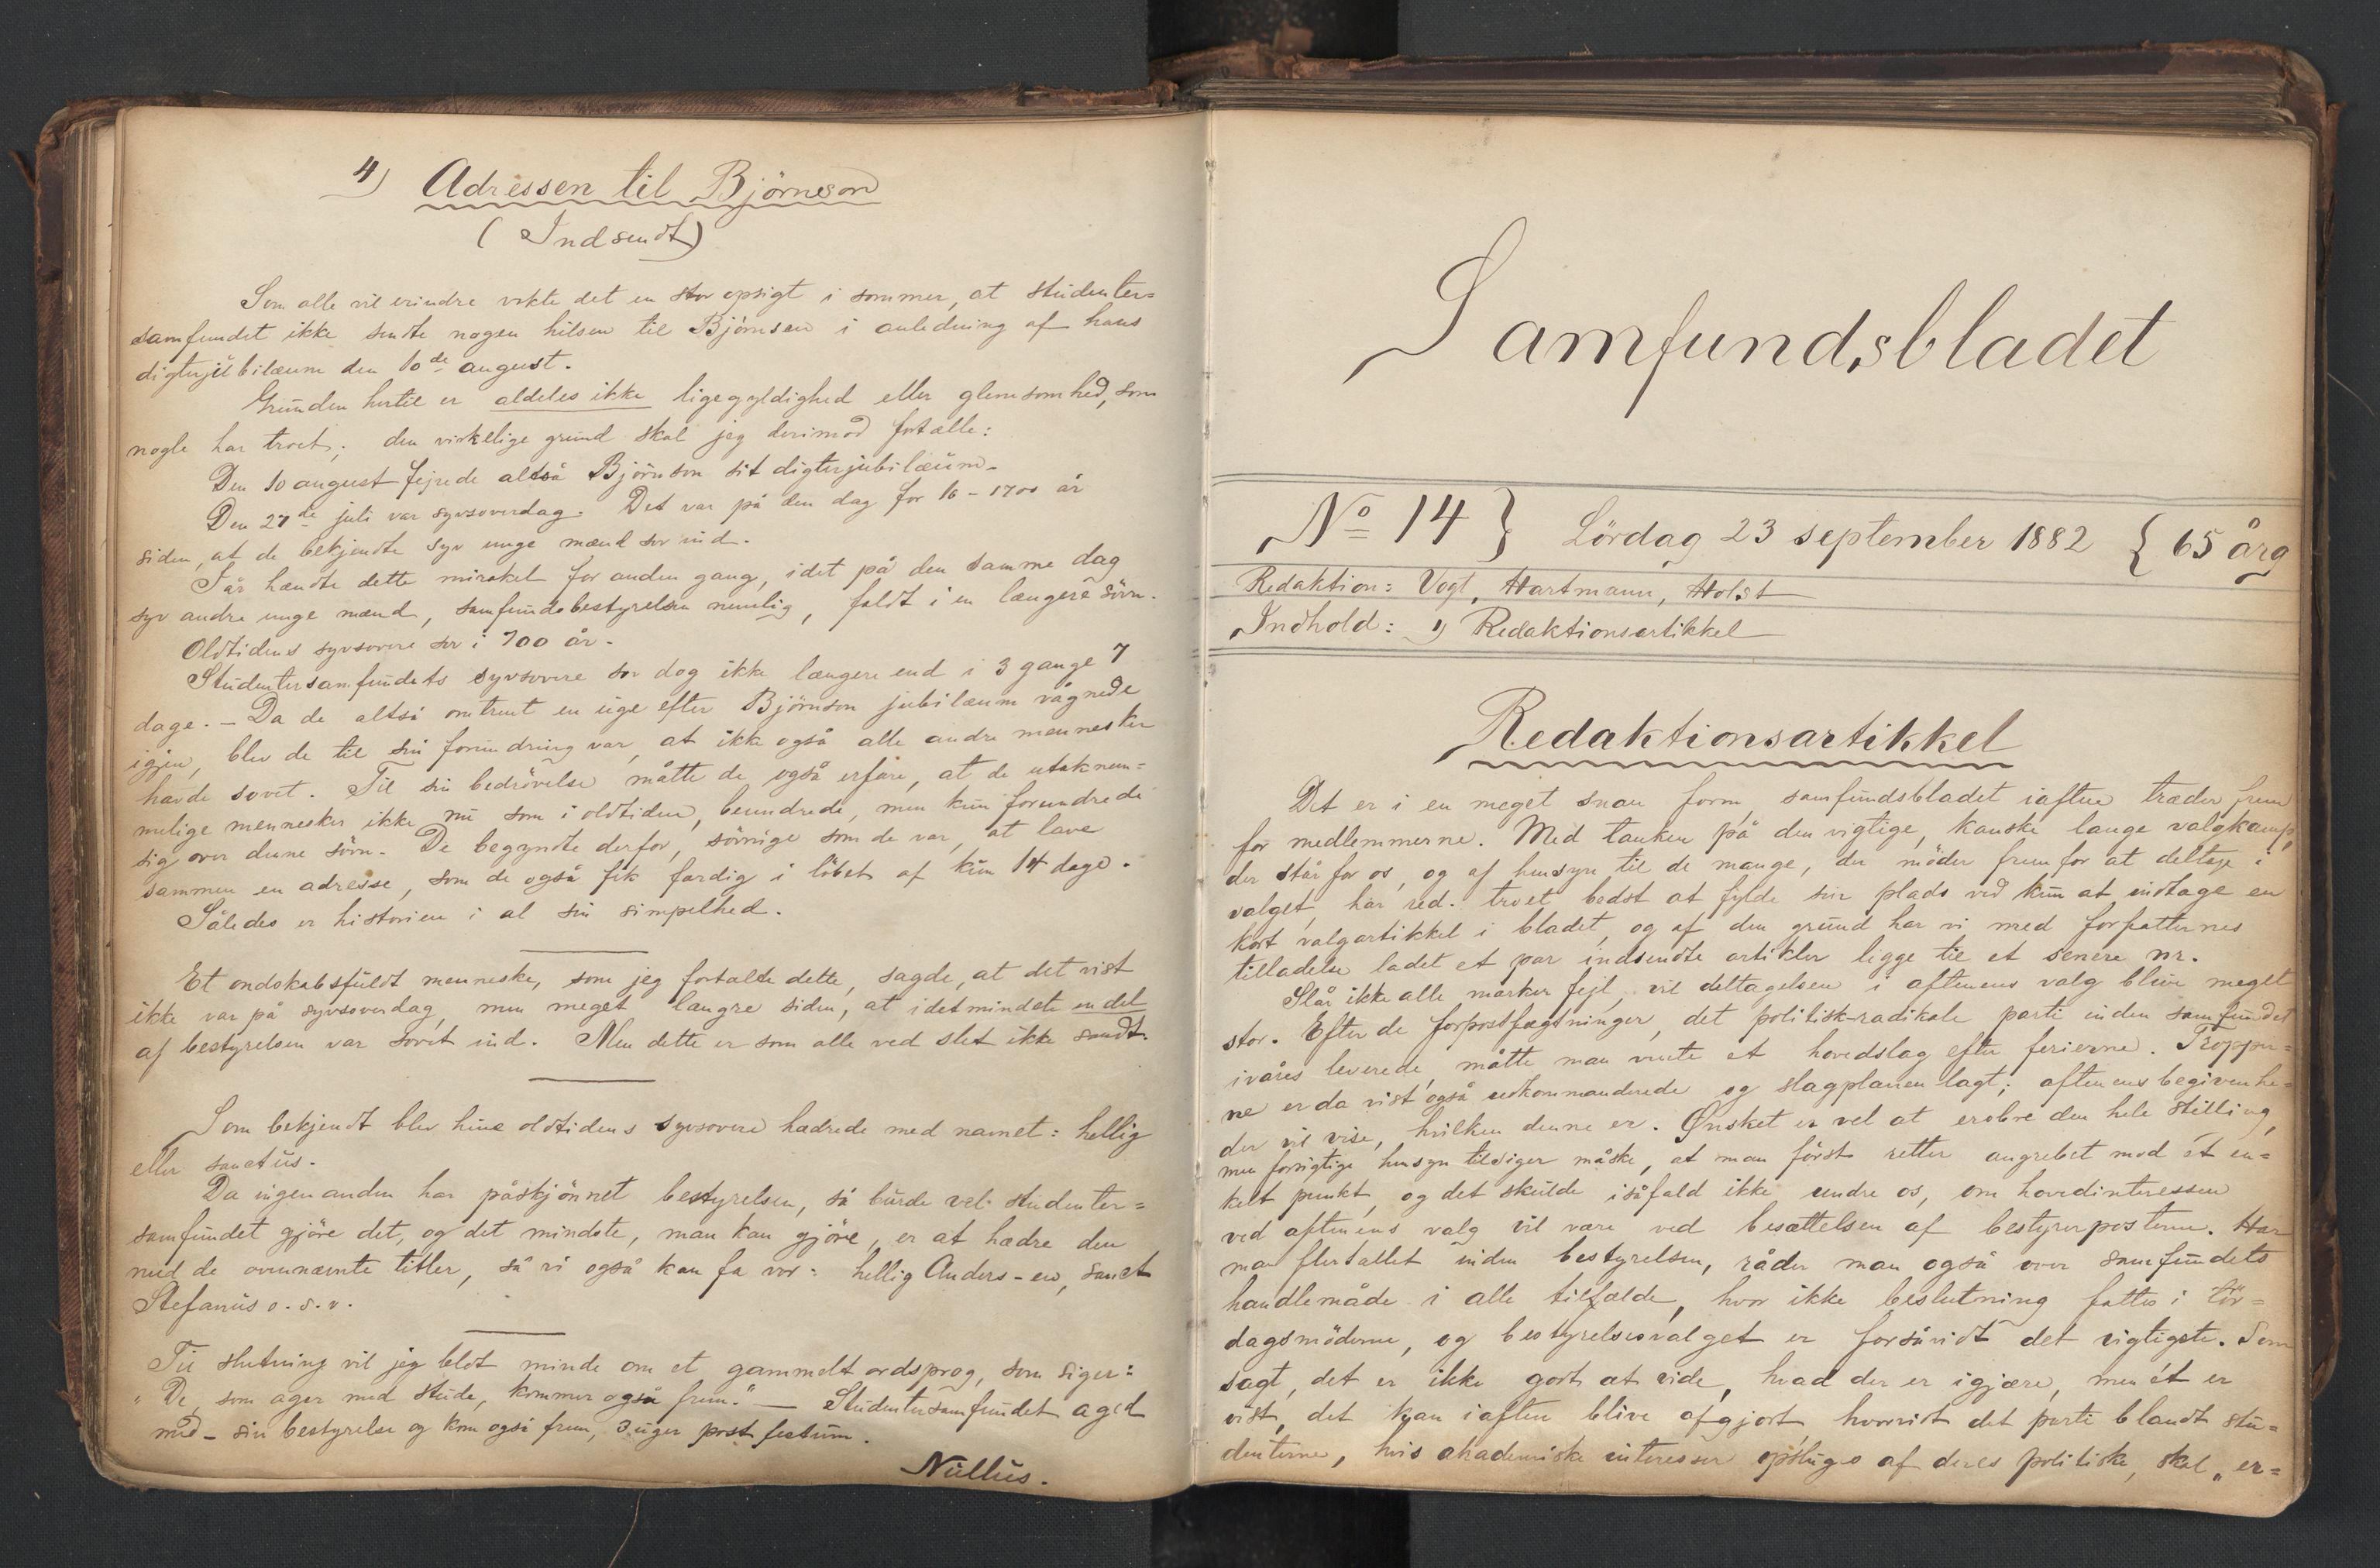 4) Adressen til Björnson
(Indsendt)
Som alle vil erindre vakte det en stor opsigt i sommer, at studenter=
samfundet ikke sendte nogen hilsen til Björnson i anledning af hans
digterjübilæum den 10de august.
Grunden hertil er aldeles ikke ligegyldighed eller glemsomhed, som
nogle har troet; den virkelige grund skal jeg derimod fortælle:
Den 10 august fejrede altså Björnson sit digterjubilæum.
Den 27de juli var syvsoverdag. Det var på den dag for 16-1700 år
siden, at de bekjendte syv unge mænd sov ind.
I år hændte dette mirakel for anden gang, idet på den samme dag
syv andre unge mænd, samfundsbestyrelsen nemlig, faldt i en længere sövn.
Oldtidens syvsovere sov i 700 år.
Studentersamfundets syvsovere sov dog ikke længere end i 3 gange 7
dage. – Da de altså omtrent en uge efter Björnson jubilæum vågnede
igjen, blev de til sin forundring var, at ikke også alle andre mennesker
havde sovet. Til sin bedrövelse måtte de også erfare, at de utaknem=
melige mennesker ikke nu som i oldtiden, beundrede, men kun forundrede
sig over denne sövn. De begyndte derfor, sövnige som de var, at lave
sammen en adresse, som de også fik færdig i löbet af kun 14 dage.
Således er historien i al sin simpelhed.
Et ondskabsfuldt menneske, som jeg fortalte dette, sagde, at det vist
ikke var på syvsoverdag, men meget længre siden, at idetmindste en del
af bestyrelsen var sovet ind. Men dette er som alle ved slet ikke sandt.
Som bekjendt blev hine oldtidens syvsovere hædrede med navnet: hellig
eller sanctus.
Da ingen anden har påskjönnet bestyrelsen, så burde vel studenter=
samfundet gjöre det, og det mindste, man kan gjöre, er at hædre den
med de ovennævnte titler, så vi også kan få vor: hellig Anders-en, sanct
Stefanus o.s.v.
Til slutning vil jeg blot minde om et gammelt ordsprog, som siger:
"De, som ager med stude, kommer også frem." — Studentersamfundet aged
med - sin bestyrelse og kom også frem, 3 uger post festum.
Nullus.
Samfundsbladet
No 14 } Lördag 23 september 1882 { 65 årg
Redaktion: Vogt, Hartmann, Holst
Indhold: 1) Redaktionsartikkel
Redaktionsartikkel
Det er i en meget snau form, samfundsbladet iaften træder frem
for medlemmerne. Med tanken på den vigtige, kanske lange valgkamp,
der står for os, og af hensyn til de mange, der möder frem for at deltage i
valget, har red. troet bedst at fylde sin plads ved kun at indtage en
kort valgartikkel i bladet, og af den grund har vi med forfatternes
tilladelse ladet et par indsendte artikler ligge til et senere nr.
Slår ikke alle mærker fejl, vil deltagelsen i aftenens valg blive meget
stor. Efter de forpostfægtninger, det politisk-radikale parti inden samfundet
ivåres leverede, måtte man vente et hovedslag efter ferierne. Tropper=
ne er da vist også udkommanderede og slagplanen lagt; aftenens begivenhe=
der vil vise, hvilken denne er. Ønsket er vel at erobre den hele stilling,
men forsigtige hensyn tilsiger måske, at man först retter angrebet mod ét en=
kelt punkt, og det skulde isåfald ikke undre os, om hovedinteressen
ved aftenens valg vil være ved besættelsen af bestyrerposterne. Har
man flertallet inden bestyrelsen, råder man også over samfundets
handlemåde i alle tilfælde, hvor ikke beslutning fattes i lör=
dagsmöderne, og bestyrelsesvalget er forsåvidt det vigtigste. Som
sagt, det er ikke godt at vide, hvad der er igjære, men ét er
vist, det kan iaften blive afgjort, hvorvidt det parti blandt stu=
denterne, hvis akademiske interesser opsluges af deres politiske, skal „er=